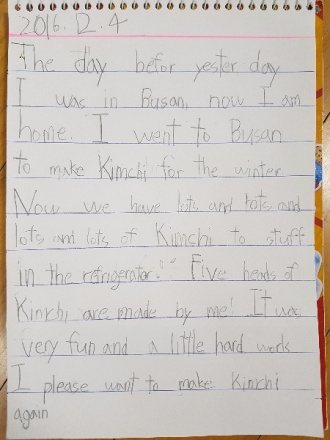 2016. 12. 4
The day befor yester day
I was in Busan, now I am
home. I went to Busan
to make Kimchi for the winter
Now we have lots and lots and
lots and lots of Kimchi to stuff
in the refrigerator! Five heads of
Kimchi are made by me! It was
very fun and a little hard work
I please want to make Kimchi
again